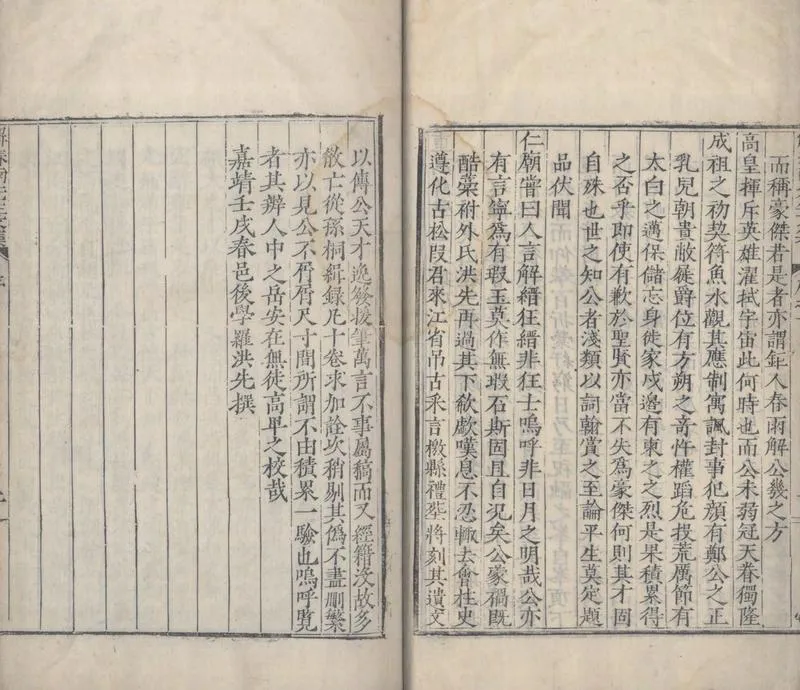 而稱豪傑若是者亦謂鉅人春雨解公幾之方
高皇揮斥英雄濯拭宇宙此何時也而公未弱冠天眷獨隆
成祖之初契符魚水觀其應制寓諷封事犯顏有鄭公之正
乳兒朝貴敝屣爵位有方朔之奇忤權蹈危投荒厲節有
太白之邁保儲忘身徙家戍邊有東之之烈是果積累得
之否乎即使有歉於聖賢亦當不失為豪傑何則其才固
自殊也世之知公者淺類以詞翰賞之至論平生莫定題
品伏聞
仁廟嘗曰人言解縉狂縉非狂士嗚呼非日月之明哉公亦
有言寧為有瑕玉莫作無瑕石斯固且自況矣公豪禍既
酷藁祔外氏洪先再過其下欷歔嘆息不忍輙去會柱史
遵化古松段君來江省吊古采言檄縣禮塋將刻其遺文
以傳公天才逸發援筆萬言不事屬稿而又經籍沒故多
散亡從孫桐緝錄凡十卷求加詮次稍剔其偽不盡刪繁
亦以見公不屑屑尺寸間所謂不由積累一驗也嗚呼覽
者其辯人中之岳安在無徒高平之校哉
嘉靖壬戌春邑後學羅洪先撰